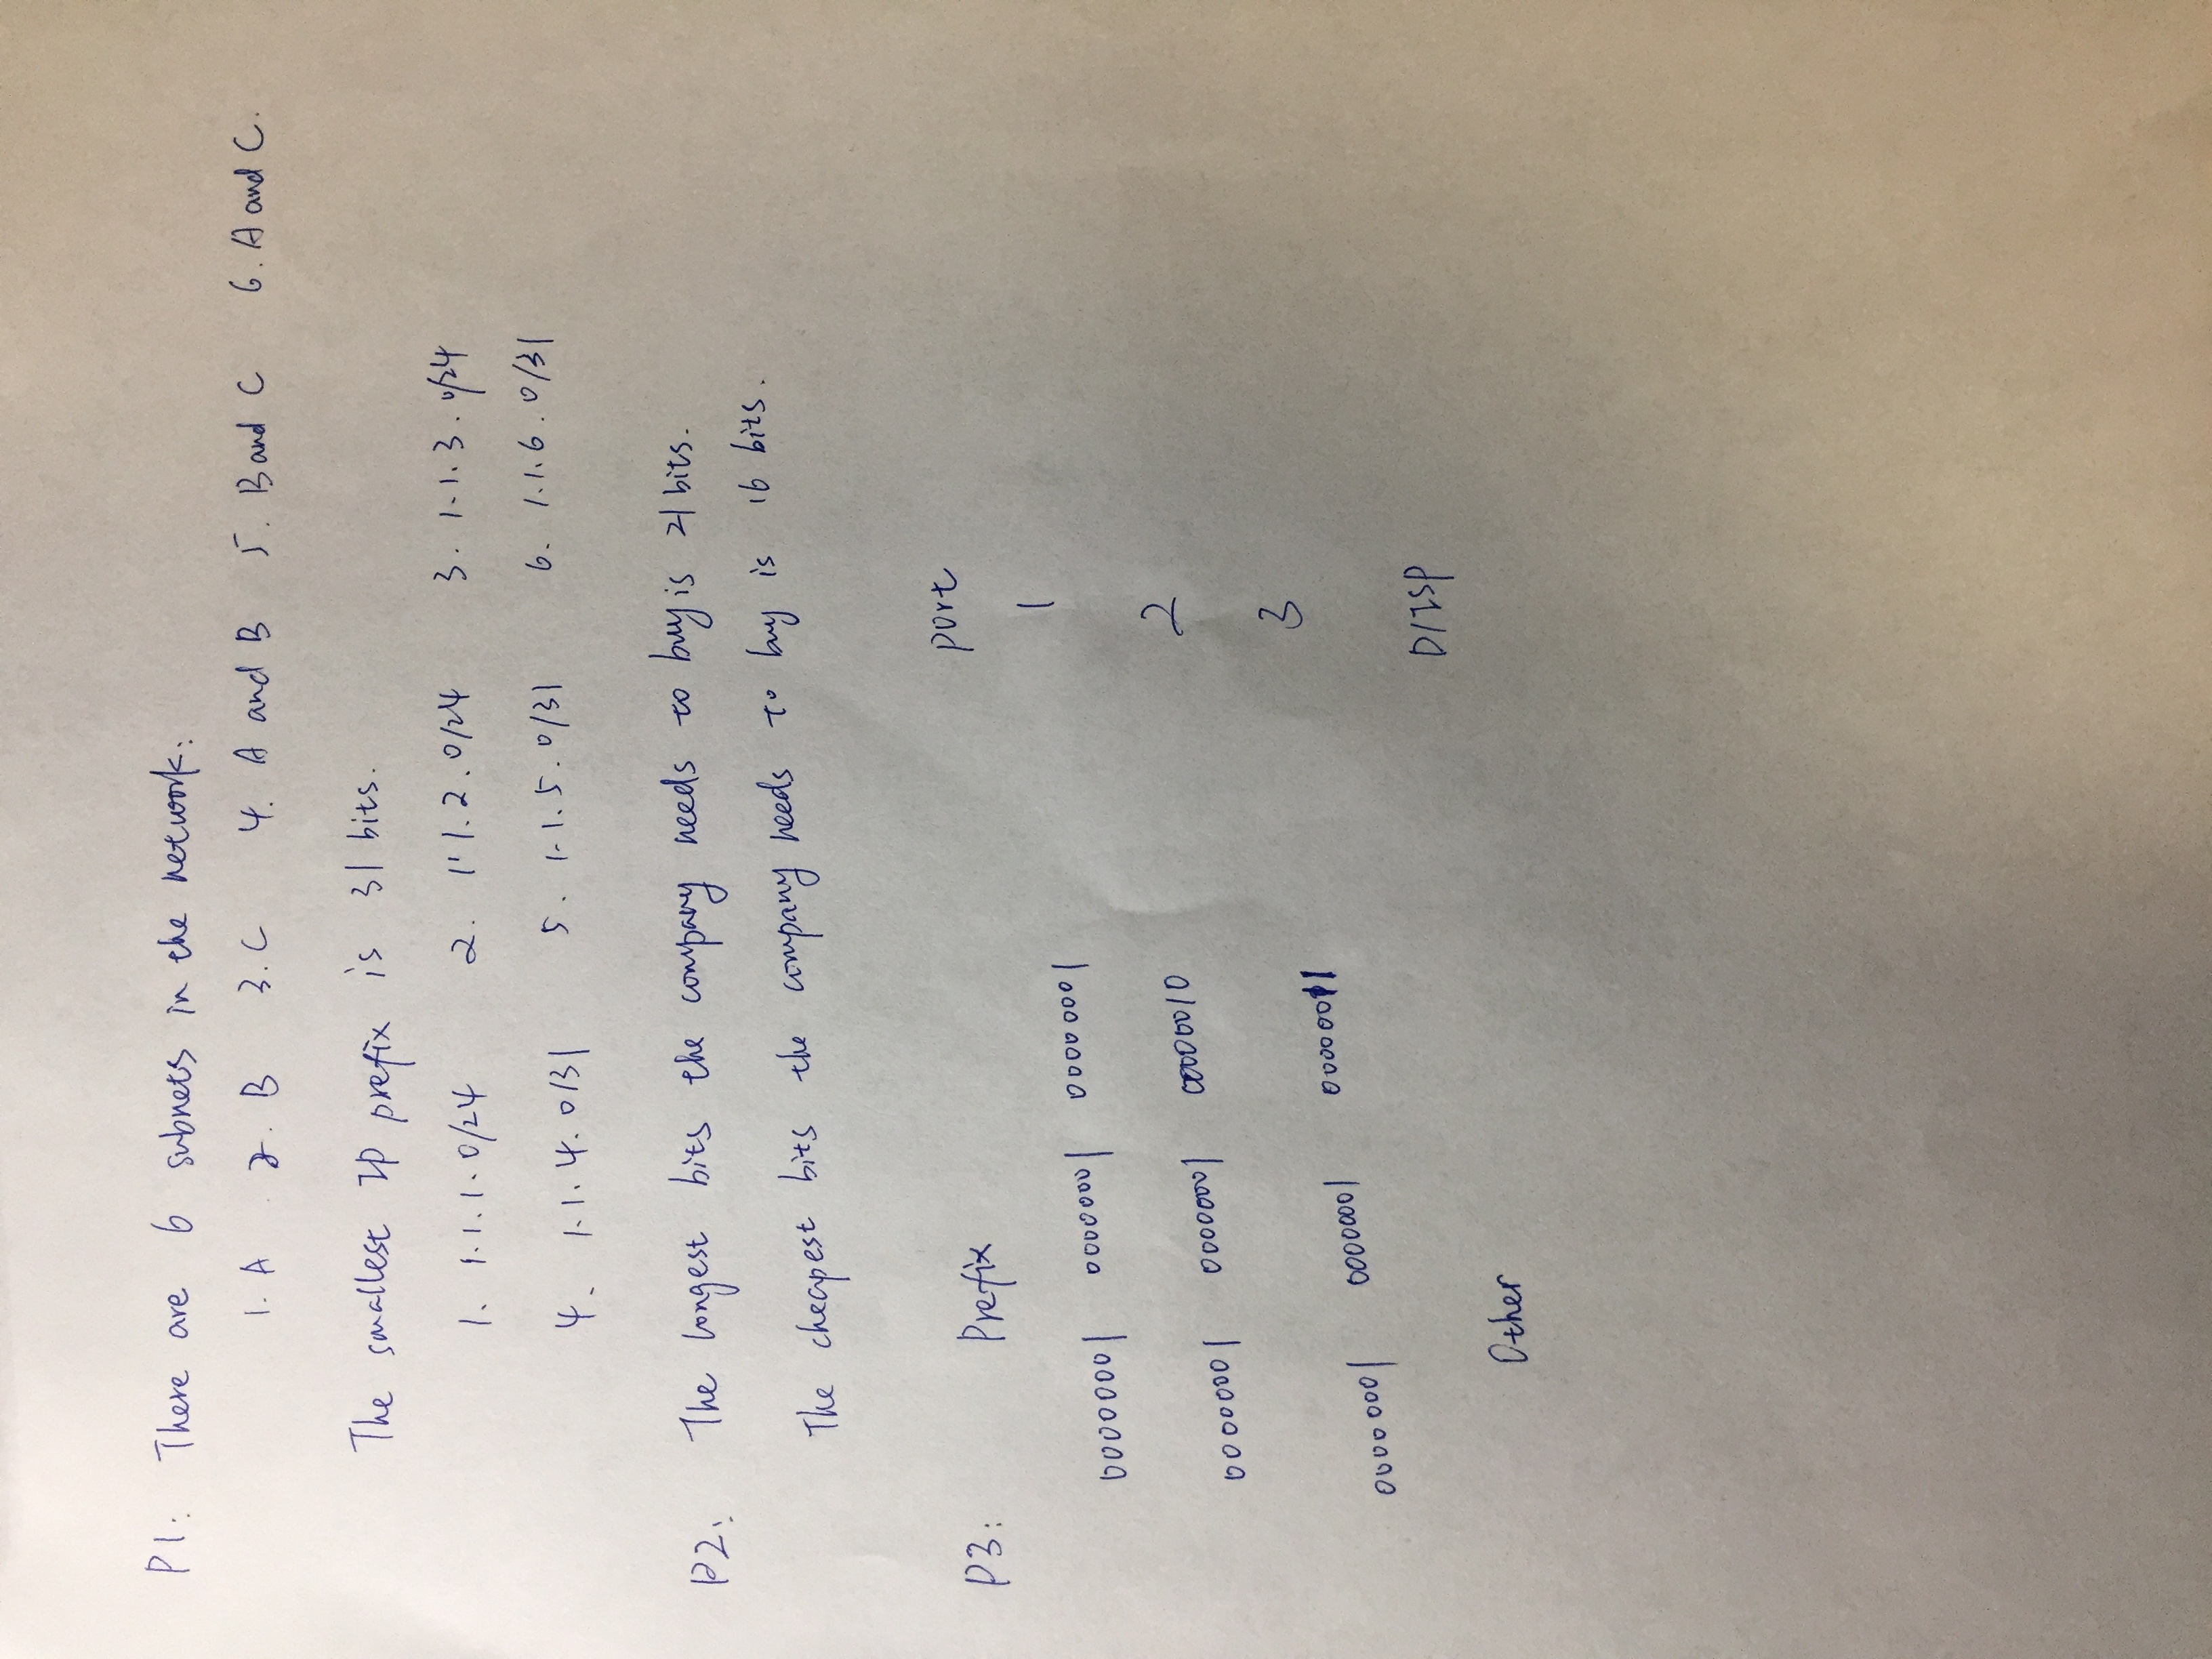 P1: There are 6 subnets in the network:
1. A 2. B 3. C 4. A and B 5. B and C 6. A and C.
The smallest IP prefix is 31 bits.
1. 1.1.1.0/24 2. 1.1.2.0/24 3. 1.1.3.0/24
4. 1.1.4.0/31 5. 1.1.5.0/31 6. 1.1.6.0/31
P2: The longest bits the company needs to buy is 21 bits.
The cheapest bits the company needs to buy is 16 bits.
P3: Prefix port
00000001 00000001 00000001 1
00000001 00000001 00000010 2
00000001 00000001 00000011 3
Other D/ISP